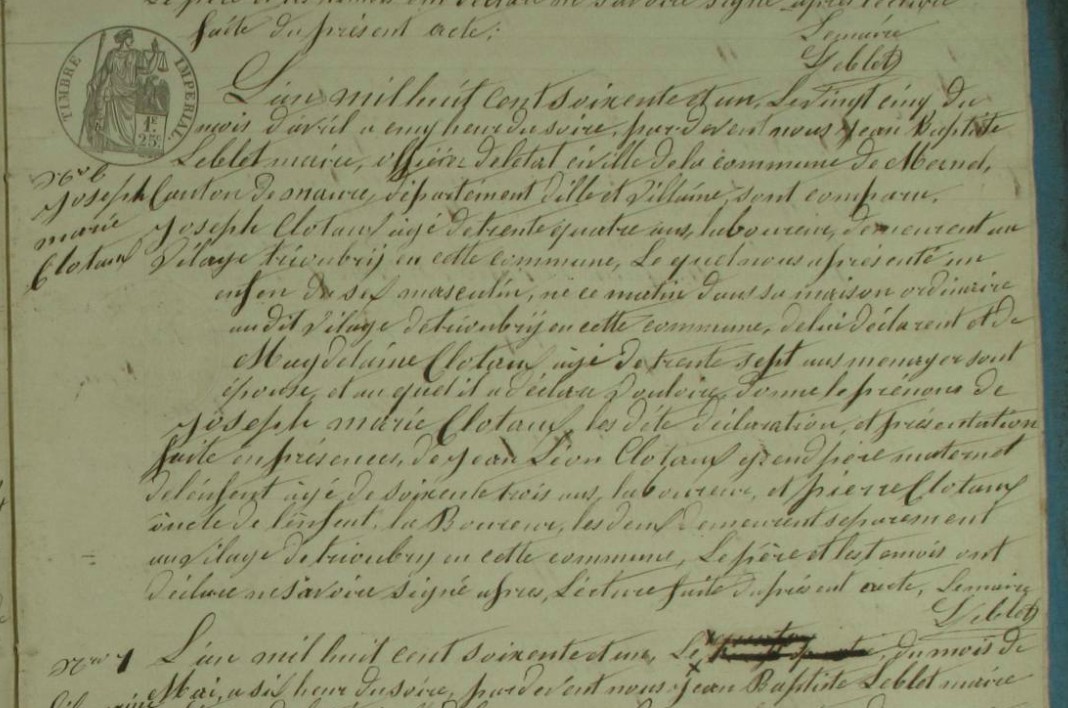 faite du présent acte;
Lemaire
Leblet
TIMBRE IMPERIAL
1F
25
L'an mil huit cent soixente et un, Le vingt cinq du
mois d'avril a cinq heur du soire, par devent nous Jean Baptiste
Leblet maire, officier de letat civille dela commune de Mernel,
Canton de maure, département d'ille et Villaine, sont comparu,
N° 6
Joseph
marie
Clotaux
Joseph Clotaux agé de trente quatre ans, laboureur, demeurent au
Vilage trioubry en cette commune, Le quel nous a présenté un
enfen du sex masculin, né ce matin dans sa maison ordinaire
au dit Vilage de trioubry en cette commune, de lui déclarent et de
Magdelaine Clotaux agé de trente sept ans menager sont
épouse, et au quel il a déclare Vouloire donne le prénoms de
Joseph marie Clotaux, les dite déclaration et présentation
faite en présences, de Jean Léon Clotaux grend pere maternel
de lénfent agé de soixente trois ans, laboureur, et pierre Clotaux
oncle de l'énfent, la Boureur, les deux demeurent séparement
au vilage de trioubry en cette commune, Le pére et les temois ont
déclare ne savoire signé apres, Lécture faite du présent acte, Lemaire
Leblet
N° 7
L'an mil huit cent soixente et un, Le du mois de
Mai, a six heur du soire, par devent nous Jean Baptiste Leblet maire